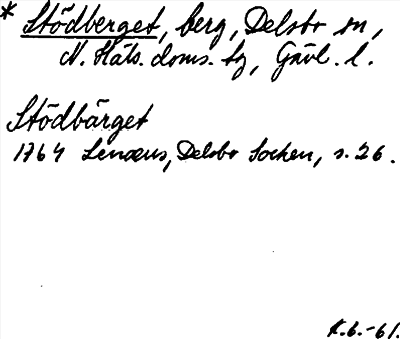 * Stödberget, berg, Delsbo sn,
N. Häls. doms. tg, Gävl. l.
Stödbärget
1764 Lenæus, Delsbo Socken, s. 26.
K.b.-61.